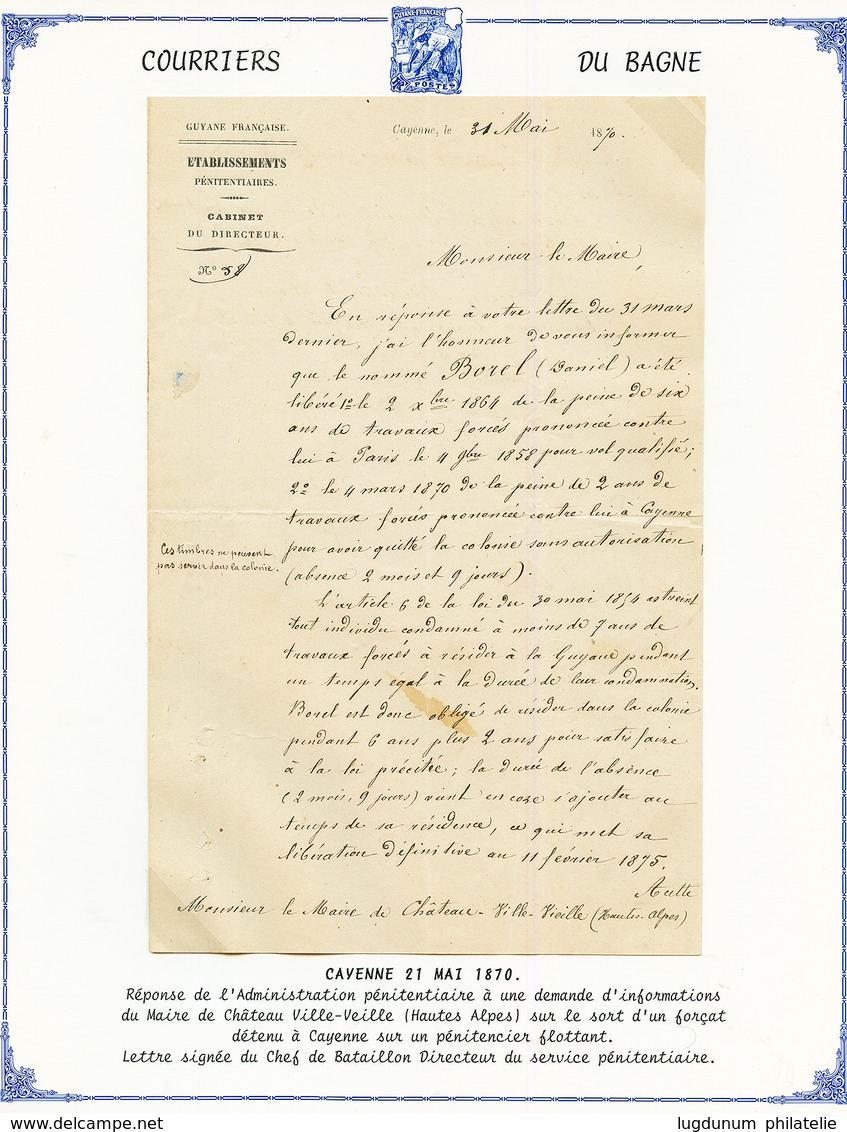 GUYANE FRANÇAISE
POSTES
COURRIERS
DU BAGNE
GUYANE FRANÇAISE.
ETABLISSEMENTS
PÉNITENTIAIRES.
CABINET
DU DIRECTEUR.
N° 58
Cayenne, le 31 Mai 1870.
Monsieur le Maire,
En réponse à votre lettre du 31 mars
dernier, j'ai l'honneur de vous informer
que le nommé Borel (Daniel) a été
libéré 1° le 2 xbre 1864 de la peine de six
ans de travaux forcés prononcée contre
lui à Paris le 4 9bre 1858 pour vol qualifié;
2° le 4 mars 1870 de la peine de 2 ans de
travaux forcés prononcée contre lui à Cayenne
pour avoir quitté la colonie sans autorisation
(absence 2 mois et 9 jours).
Ces timbres ne peuvent
pas servir dans la colonie.
L'article 6 de la loi du 30 mai 1854 astreint
tout individu condamné à moins de 7 ans de
travaux forcés à résider à la Guyane pendant
un temps égal à la durée de leur condamnation.
Borel est donc obligé de résider dans la colonie
pendant 6 ans plus 2 ans pour satisfaire
à la loi précitée; la durée de l'absence
(2 mois, 9 jours) vient encore s'ajouter au
temps de sa résidence, ce qui met sa
libération définitive au 11 février 1875.
A cette
Monsieur le Maire de Château-Ville-Vieille (Hautes-Alpes)
CAYENNE 21 MAI 1870.
Réponse de l'Administration pénitentiaire à une demande d'informations
du Maire de Château Ville-Veille (Hautes Alpes) sur le sort d'un forçat
détenu à Cayenne sur un pénitencier flottant.
Lettre signée du Chef de Bataillon Directeur du service pénitentiaire.
www.delcampe.net
lugdunum philatelie